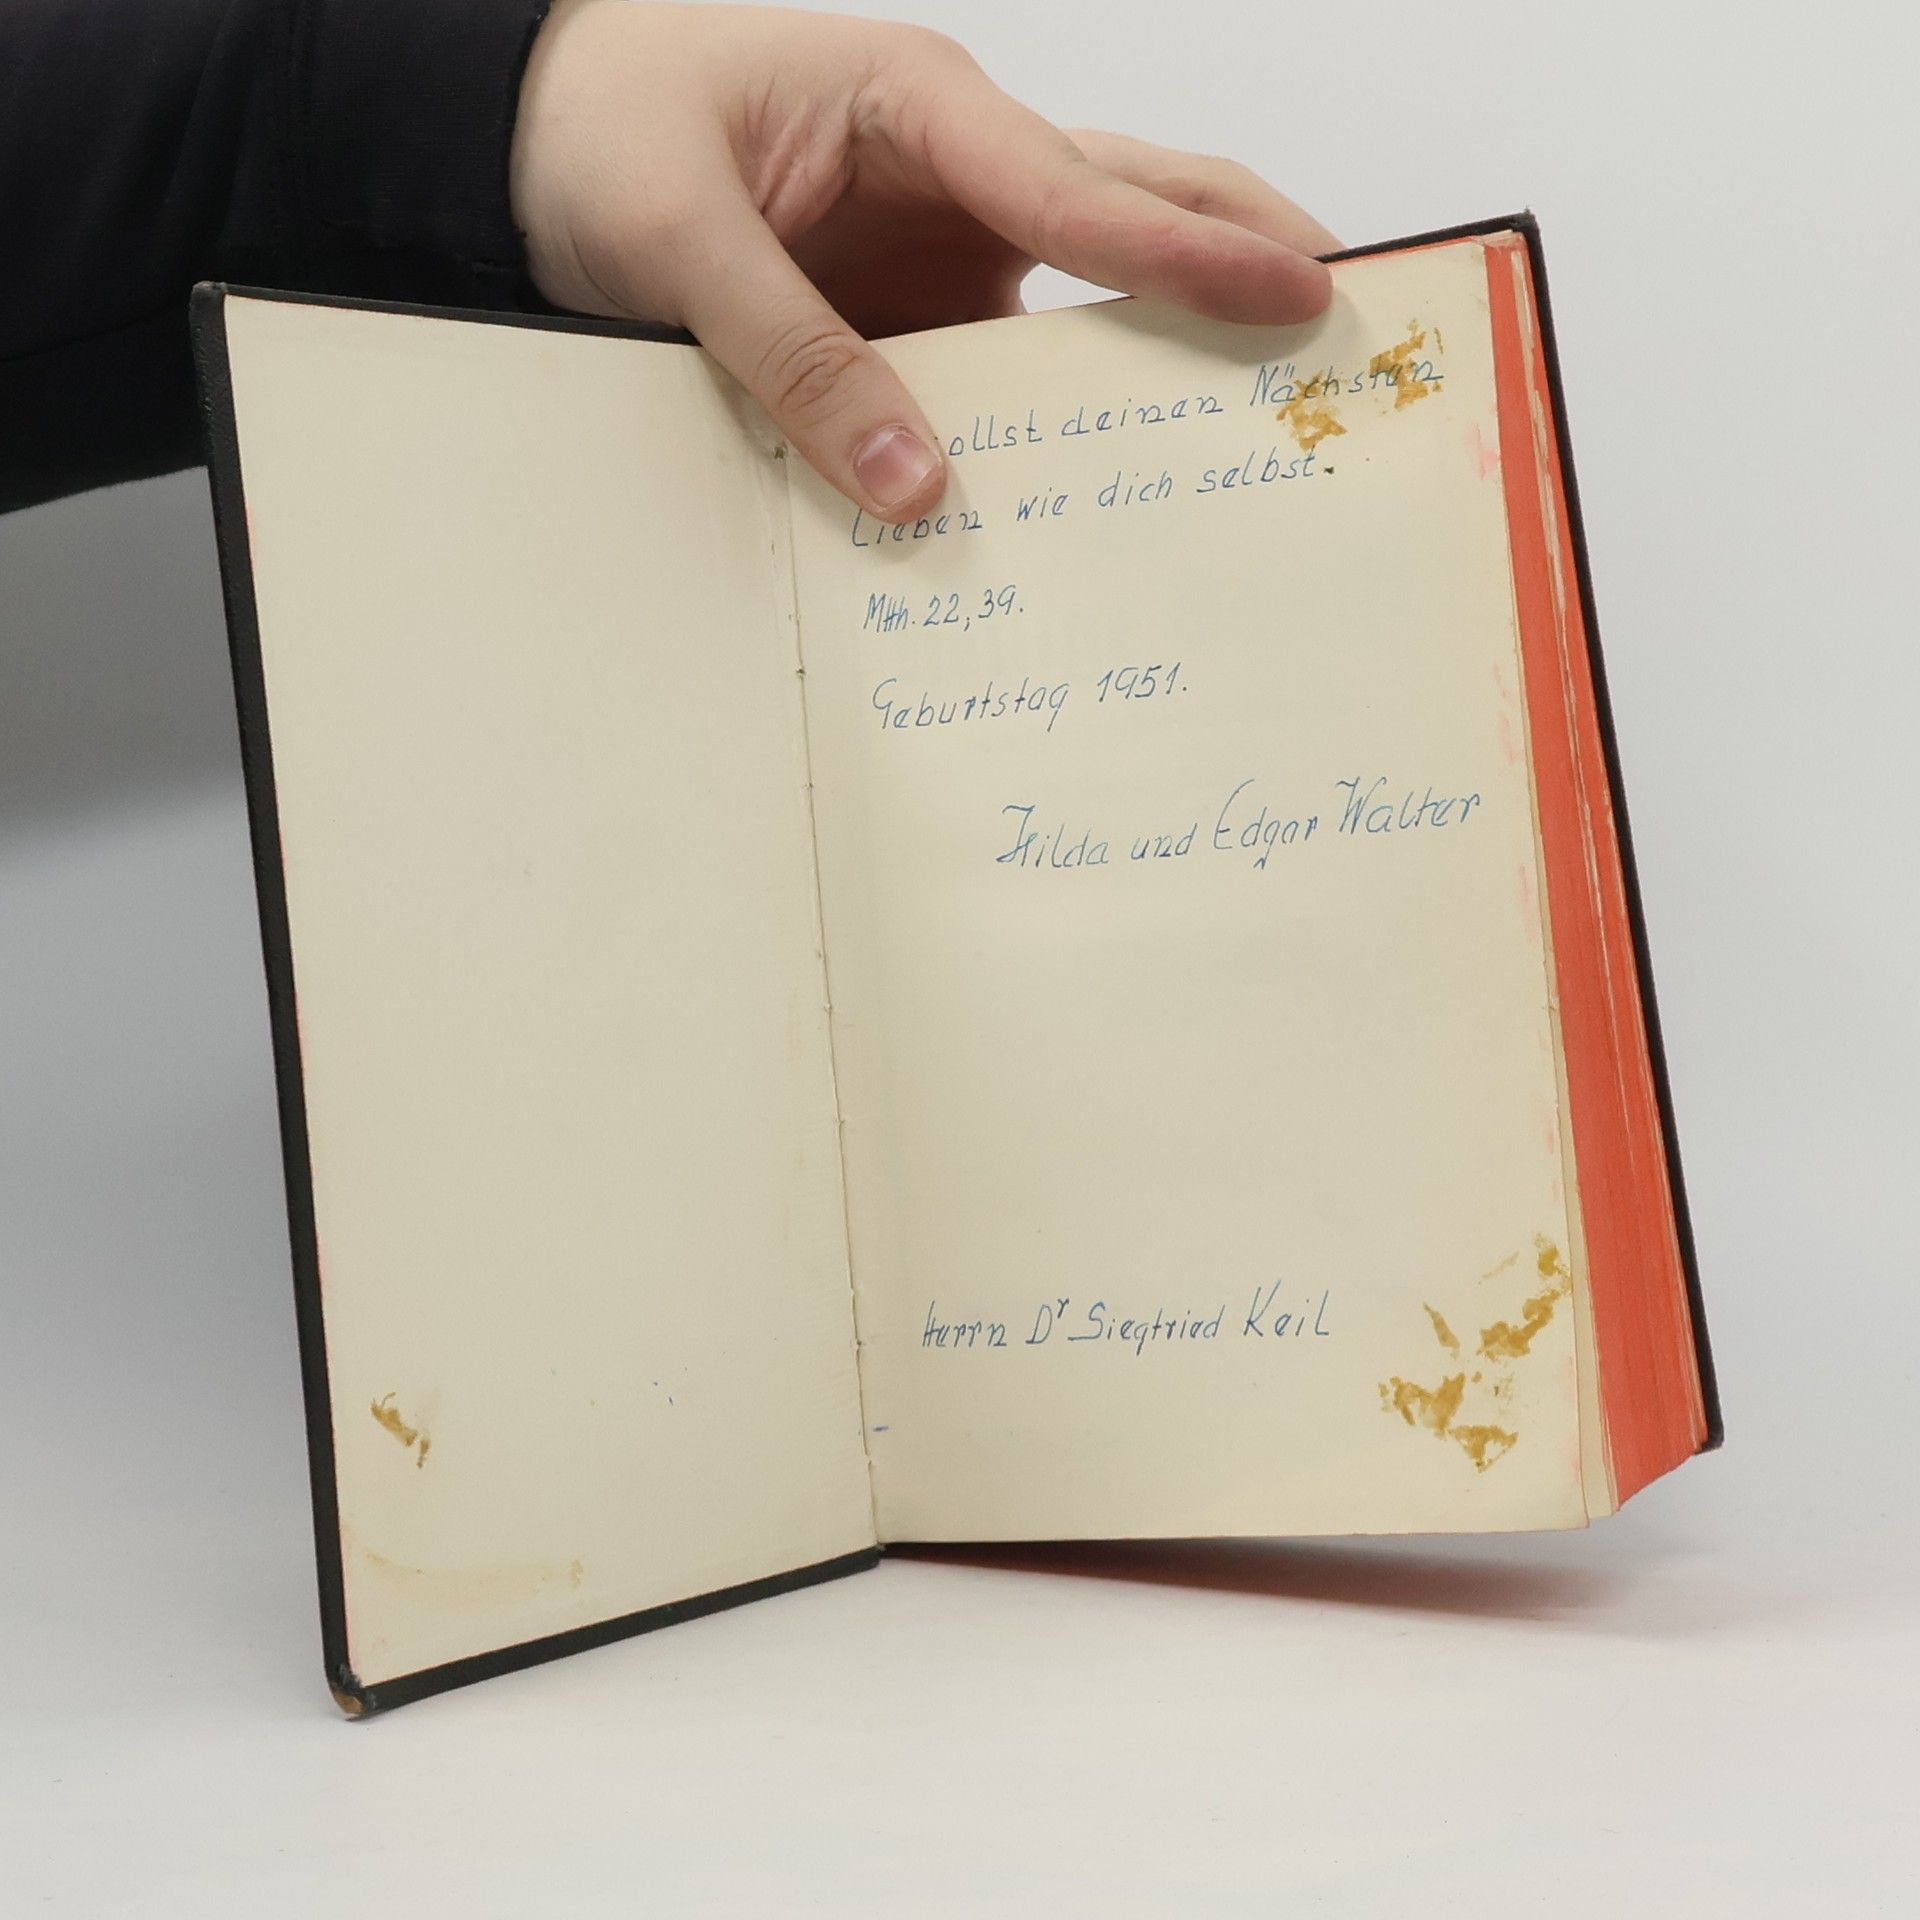 ollst deinen Nächsten
Lieben wie dich selbst.
Mtth. 22, 39.
Geburtstag 1951.
Hilda und Edgar Walter
Herrn Dr Siegfried Keil